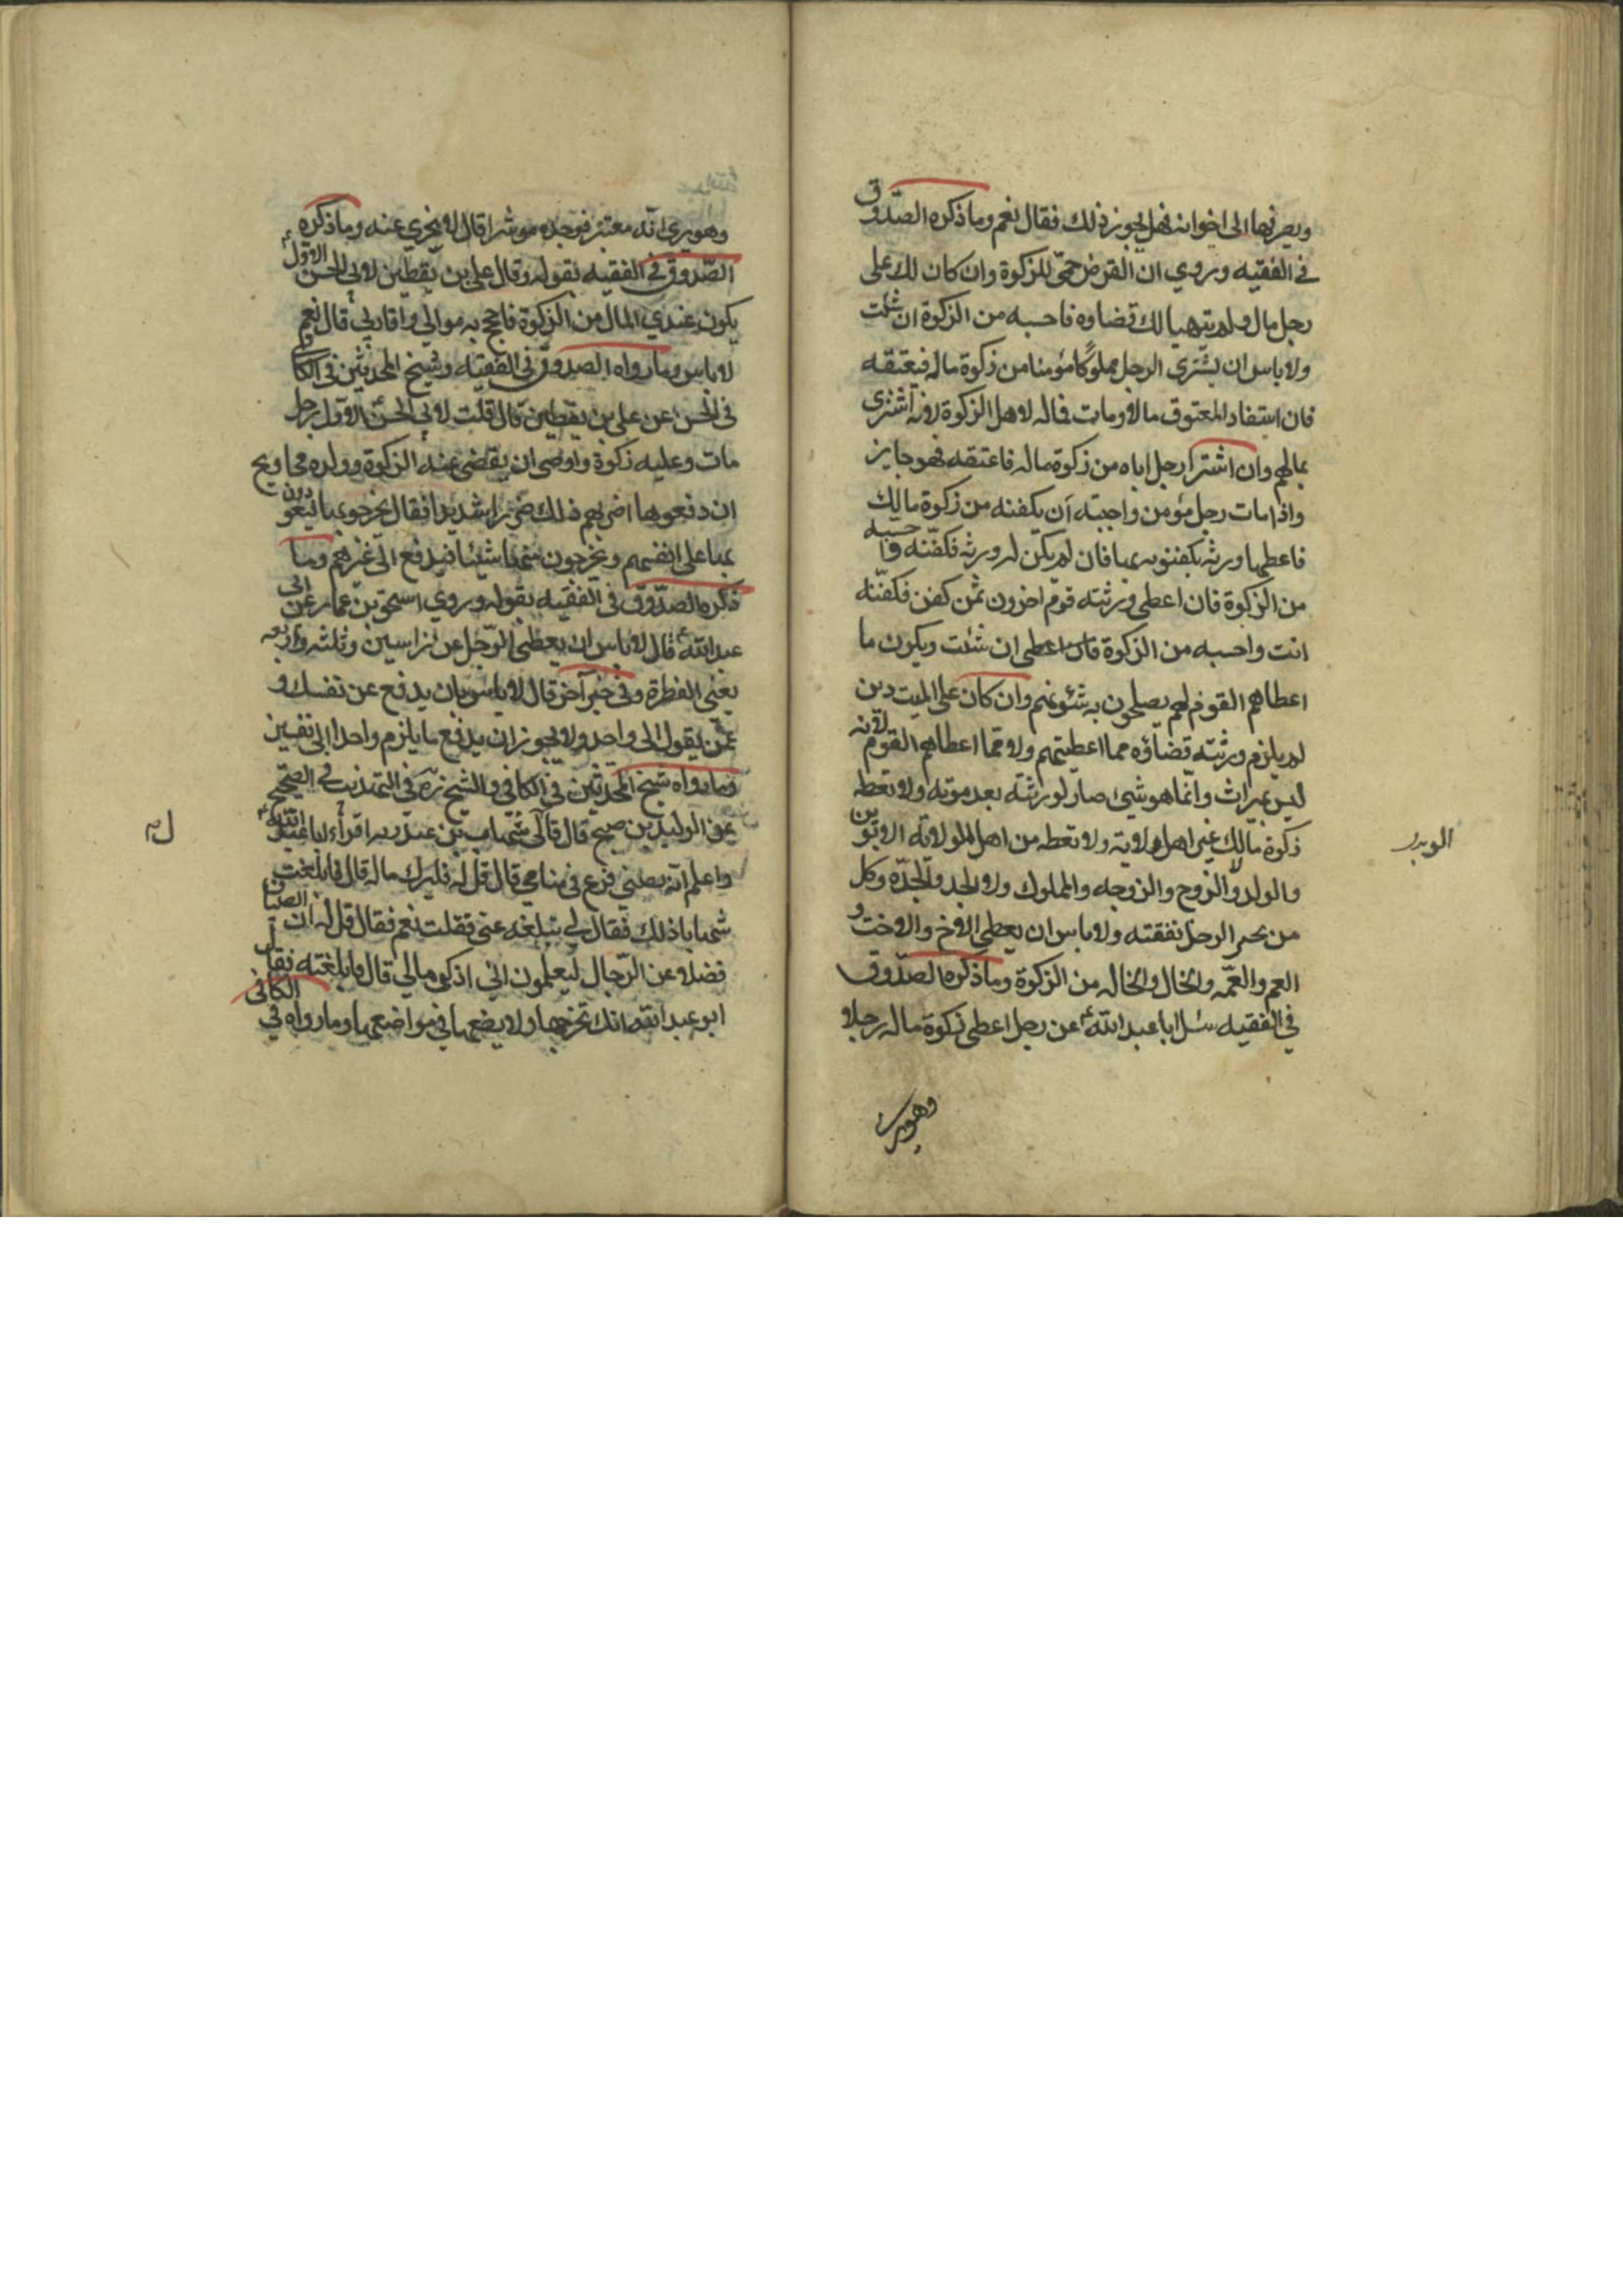 ويصرفها الى اخوانه فهل يجوز ذلك فقال نعم وما ذكره الصدوق
في الفقيه وروي ان القرض حمى للزكوة وان كان لك على
رجل مال ولم يتهيا لك قضاوه فاحسبه من الزكوة ان شئت
ولا باس ان يشترى الرجل مملوكا مؤمنا من زكوة ماله فيعتقه
فان استفاد المعتوق مالا ومات فماله لاهل الزكوة لانه اشترى
بمالهم وان اشترا رجل اباه من زكوة ماله فاعتقه فهو جايز
واذا مات رجل مؤمن واحببته ان يكفنه من زكوة مالك
فاعطها ورثه يكفنونه بها فان لم يكن له ورثه فكفنه واحسبه
من الزكوة فان اعطى ورثته قوم اخرون ثمن كفن فكفنه
انت واحسبه من الزكوة اعطى ان شئت ويكون ما
اعطاهم القوم لهم يصلحون به شئونهم وان كان على الميت دين
لم يلزم ورثته قضاؤه مما اعطيتهم ولا مما اعطاهم القوم لانه
ليس بميراث وانما هو شيئ صار لورثته بعد موته ولا تعطه
زكوة مالك غير اهل ولاية ولا تعطه من اهل الولاية الابوين
والولد ولا الزوج والزوجه والمملوك ولا الجد والجدة وكل
من يجبر الرجل نفقته ولا باس ان يعطى الاخ والاخت و
العم والعمه والخال والخاله من الزكوة وما ذكره الصدوق
في الفقيه سئل ابا عبد الله ع عن رجل اعطى زكوة ماله رجلا
وهو يرى
وهو يرى انه معتبر فوجده موشرا قال لا يجزي عنه وما ذكره
الصدوق في الفقيه بقوله وقال علي بن يقطين لابى الحسن الاول ع
يكون عندي المال من الزكوة فاحج به موالي واقاربي قال نعم
لا باس وما رواه الصدوق في الفقيه وشيخ المحدثين في الكافى
في الحسن عن علي بن يقطين قال قلت لابى الحسن الاول رجل
مات وعليه زكوة واوصى ان يقضى عنه الزكوة وولده محاويج
ان دفعوها اضر بهم ذلك ضررا شديدا فقال يخرجونها فيعودون
بها على انفسهم ويخرجون منها شيئا فيدفع الى غيرهم وما
ذكره الصدوق في الفقيه بقوله وروي اسحق بن عمار عن ابى
عبد الله ع قال لا باس ان يعطى الرجل عن راسين وثلثه واربعه
يعنى الفطرة وفي خبر آخر قال لا باس بان يدفع عن نفسك و
عمن يقول الى واحد ولا يجوز ان يدفع ما يلزم واحدا الى نفسين
وما رواه شيخ المحدثين في الكافي والشيخ ره في التهذيب في الصحيح
عن الوليد بن صبيح قال قال لي شهاب بن عبد ربه اقرأ ابا عبد الله ع
واعلم انه يصيبني فزع في منامي قال قل له فليزك ماله قال فابلغت
شهابا ذلك فقال لي تبلغه عني فقلت نعم فقال قل له ان الصبيان
فضلا عن الرجال ليعلمون اني ازكي مالي قال فابلغته فقال
ابو عبد الله انك تخرجها ولا يضعها في مواضعها وما رواه في الكافي